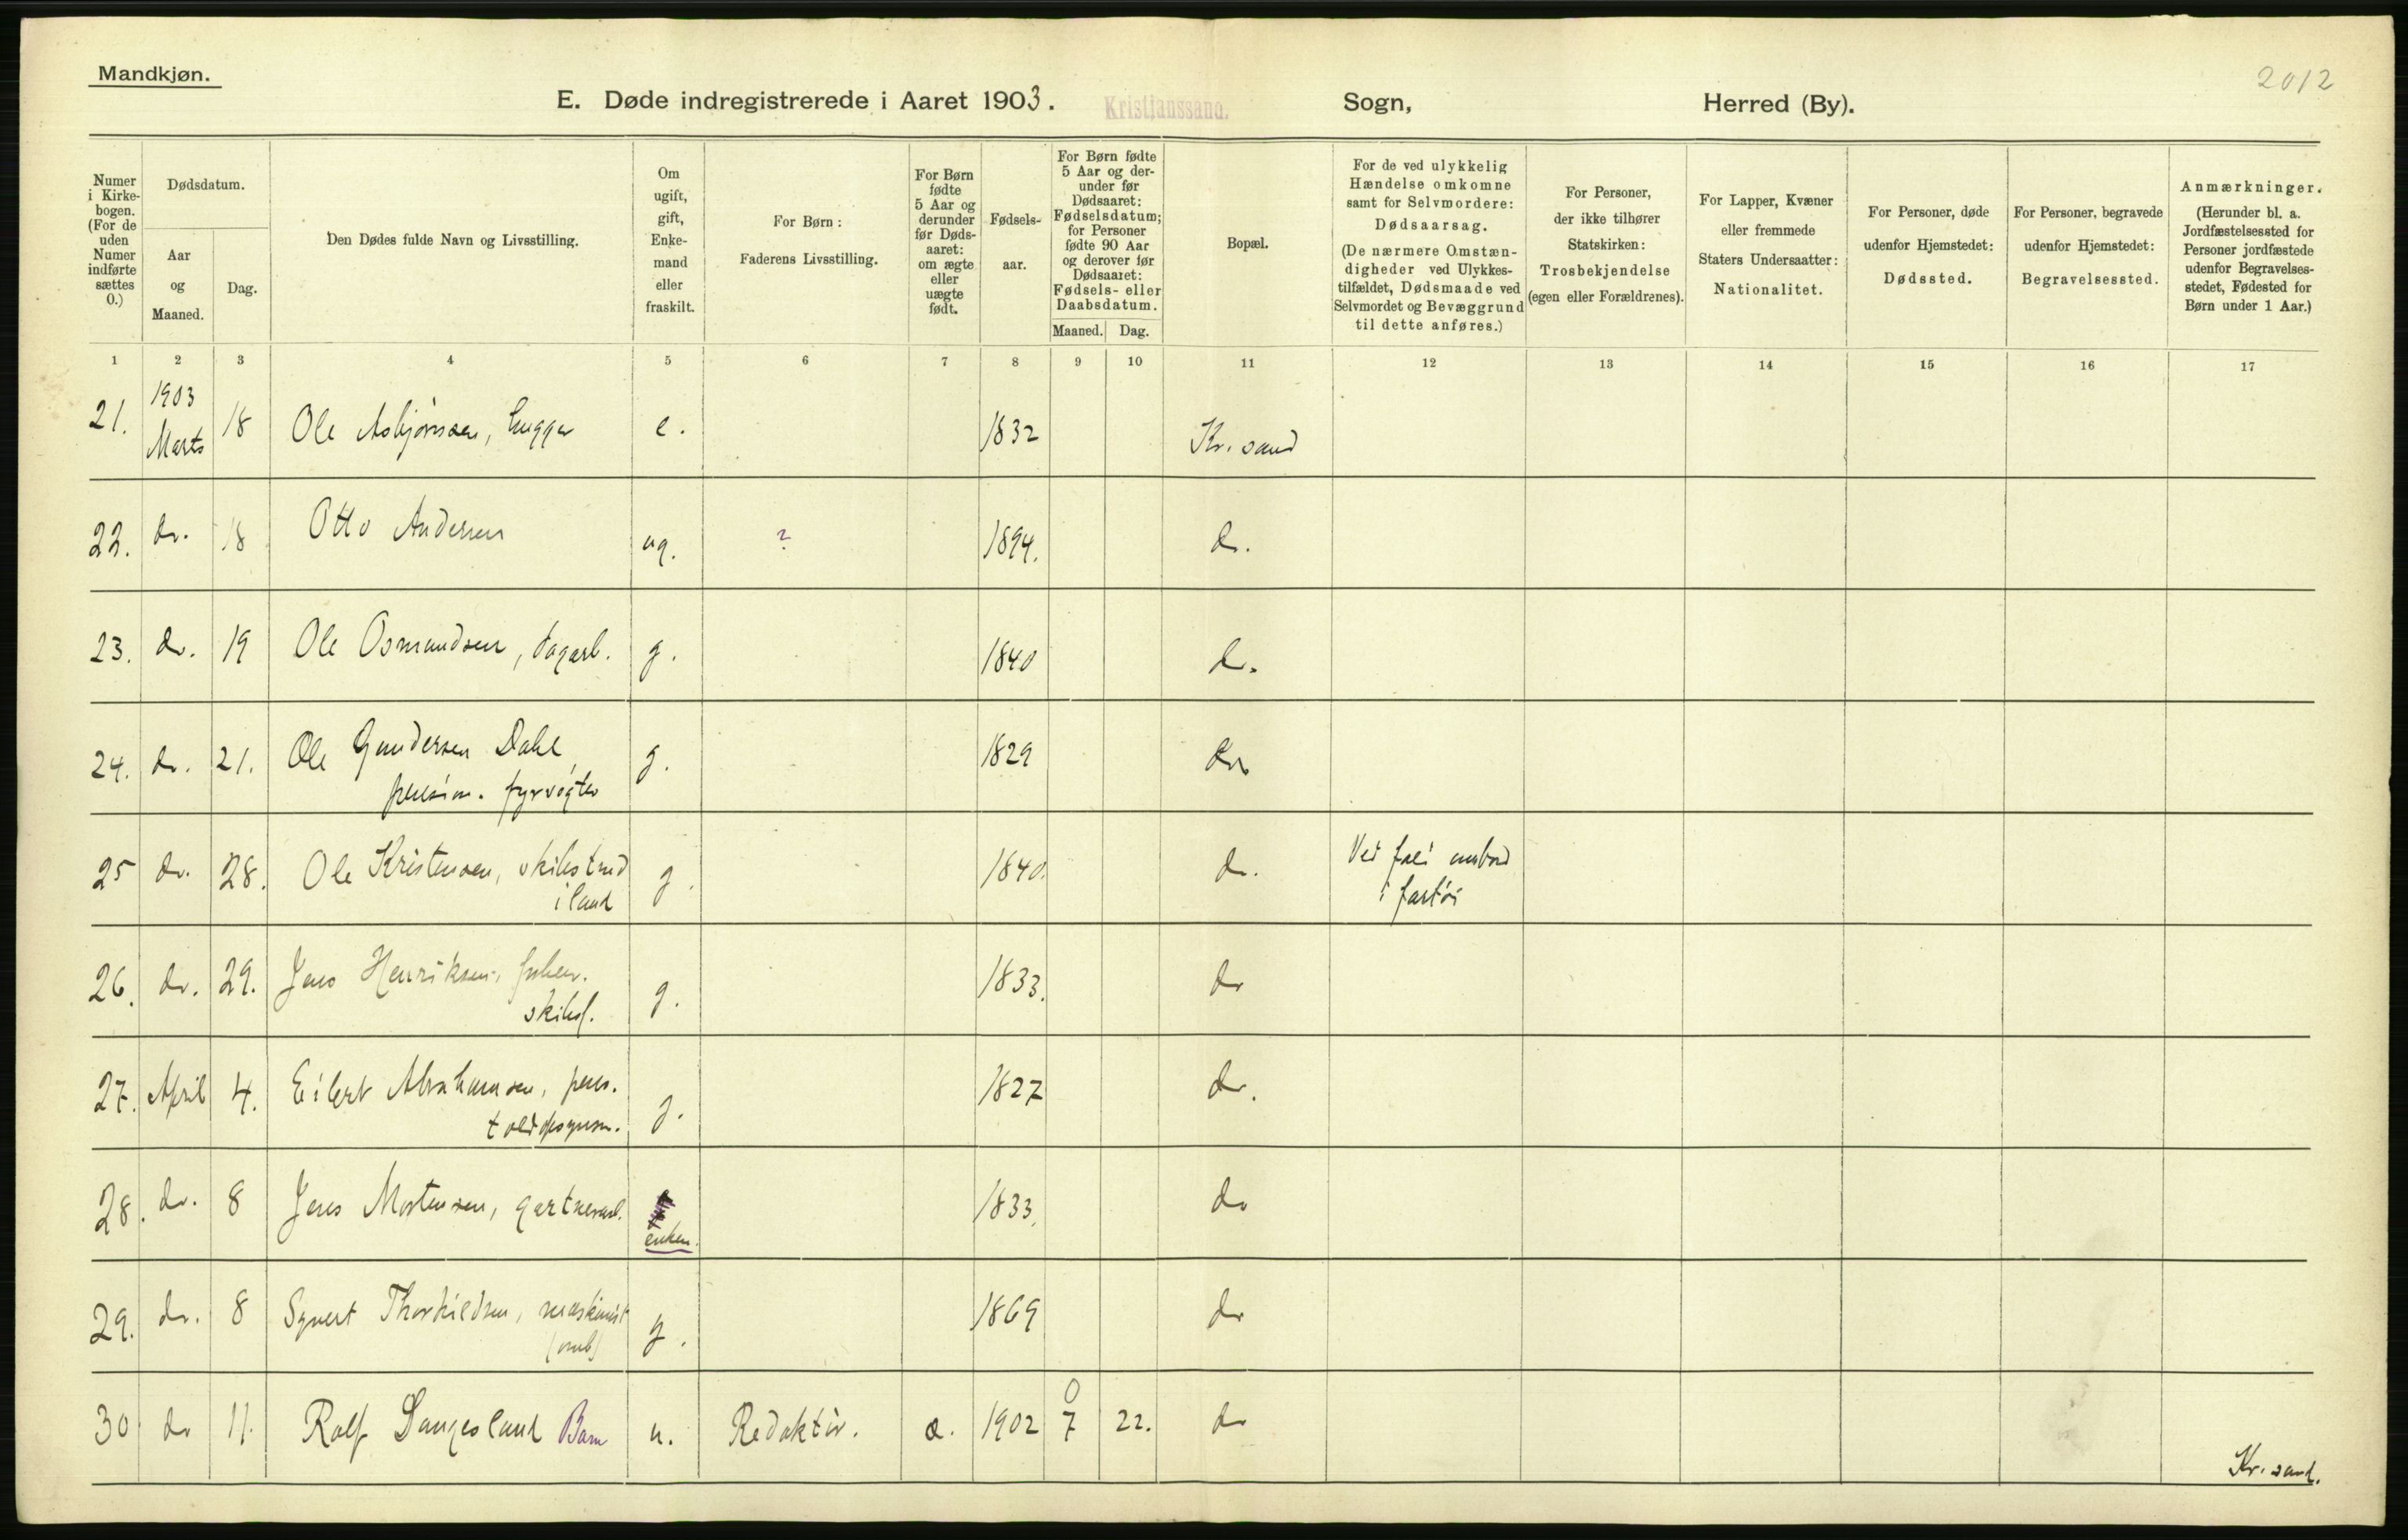 Mandkjøn.
2012
E. Døde indregistrerede i Aaret 1903. Kristianssand. Sogn, Herred (By).
Numer i Kirkebogen. (For de uden Numer indførte sættes 0.)
Dødsdatum.
Aar og Maaned.
Dag.
Den Dødes fulde Navn og Livsstilling.
Om ugift, gift, Enkemand eller fraskilt.
For Børn: Faderens Livsstilling.
For Børn fødte 5 Aar og derunder før Dødsaaret: om ægte eller uægte født.
Fødselsaar.
For Børn fødte 5 Aar og derunder før Dødsaaret: Fødselsdatum; for Personer fødte 90 Aar og derover før Dødsaaret: Fødsels- eller Daabsdatum.
Maaned. Dag.
Bopæl.
For de ved ulykkelig Hændelse omkomne samt for Selvmordere: Dødsaarsag. (De nærmere Omstændigheder ved Ulykkestilfældet, Dødsmaade ved Selvmordet og Bevæggrund til dette anføres.)
For Personer, der ikke tilhører Statskirken: Trosbekjendelse (egen eller Forældrenes).
For Lapper, Kvæner eller fremmede Staters Undersaatter: Nationalitet.
For Personer, døde udenfor Hjemstedet: Dødssted.
For Personer, begravede udenfor Hjemstedet: Begravelsessted.
Anmærkninger. (Herunder bl. a. Jordfæstelsessted for Personer jordfæstede udenfor Begravelsesstedet, Fødested for Børn under 1 Aar.)
1 2 3 4 5 6 7 8 9 10 11 12 13 14 15 16 17
21. 1903 Marts 18 Ole Asbjørnsen, hugger e. 1832 Kr. sand
22. do. 18 Otto Andersen ug. ? 1894. do.
23. do. 19 Ole Osmundsen, dagarb. g. 1840 do.
24. do. 21. Ole Gundersen Dahl, g. 1829 do
pension. fyrvogter
25 do. 28. Ole Kristensen, skibstmd g. 1840. do. Ved fald ombord
iland i fartøi
26. do. 29. Jens Henriksen, g. 1833. do
skibsf.
27. April 4. Eilert Abrahamsen, pens. g. 1827 do.
toldopsynsm.
28. do. 8 Jens Mortensen, gartnerarb. enkem. 1833. do
29. do. 8 Syvert Thorkildsen, maskinist g. 1869 do
(omb)
30 do 11. Rolf Langesland Barn u. Redaktør. æ. 1902 0 7 22. do
Kr. sand.